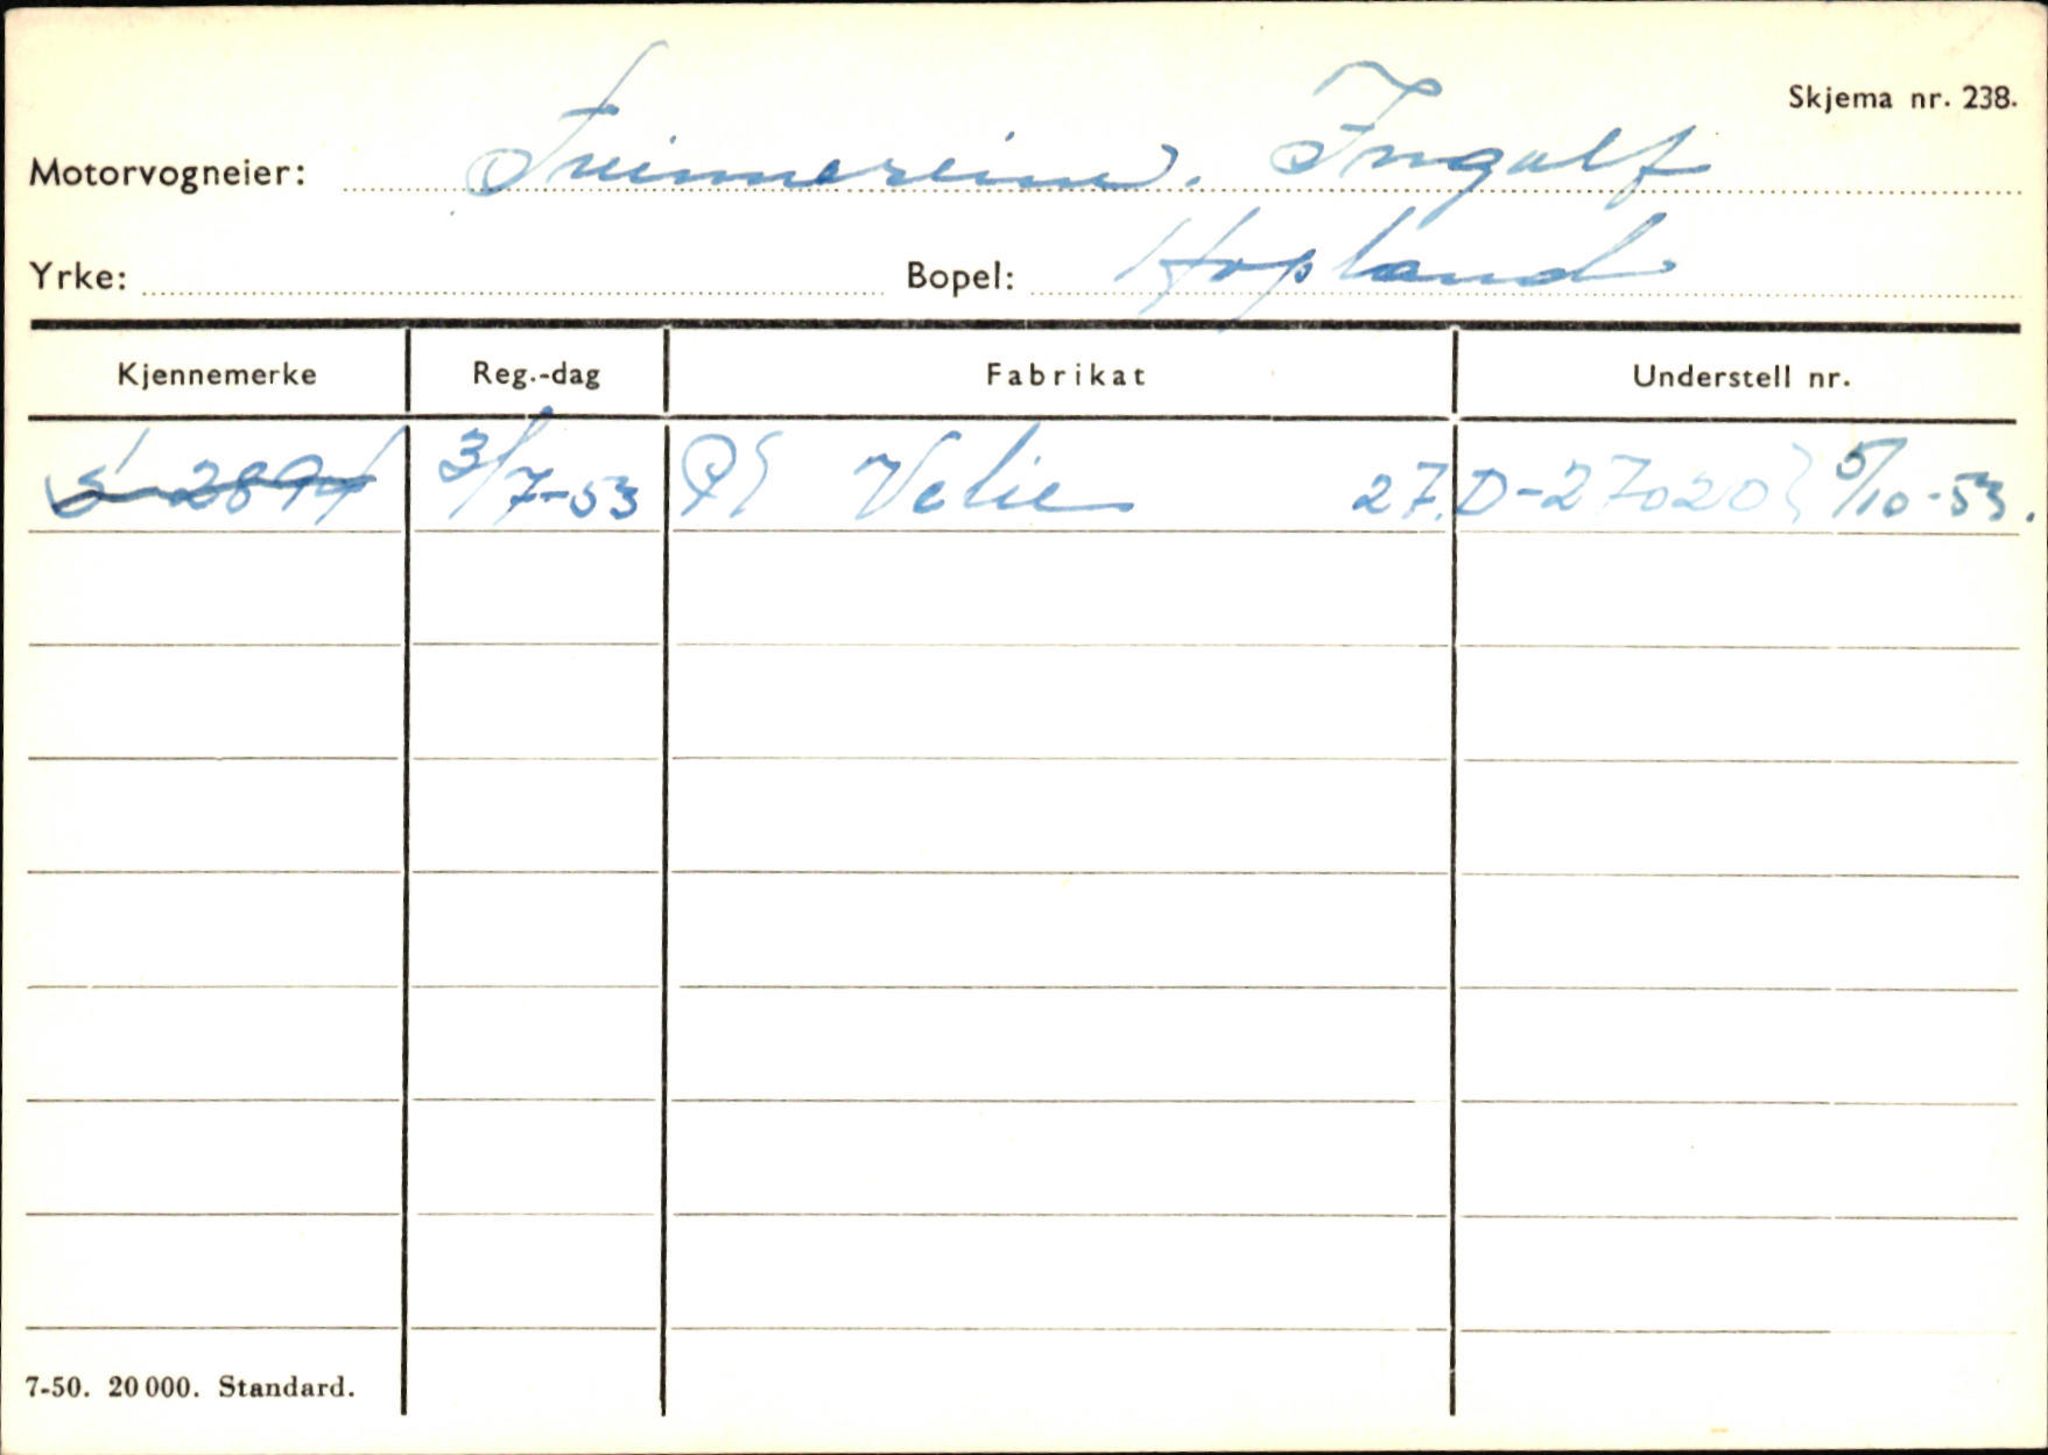 Skjema nr. 238.
Motorvogneier: Ingolf
Yrke: Bopel: Hopland
Kjennemerke Reg.-dag Fabrikat Understell nr.
S-2894 3/7-53 Velie 27. D-27020 5/10-53.
7-50. 20 000. Standard.